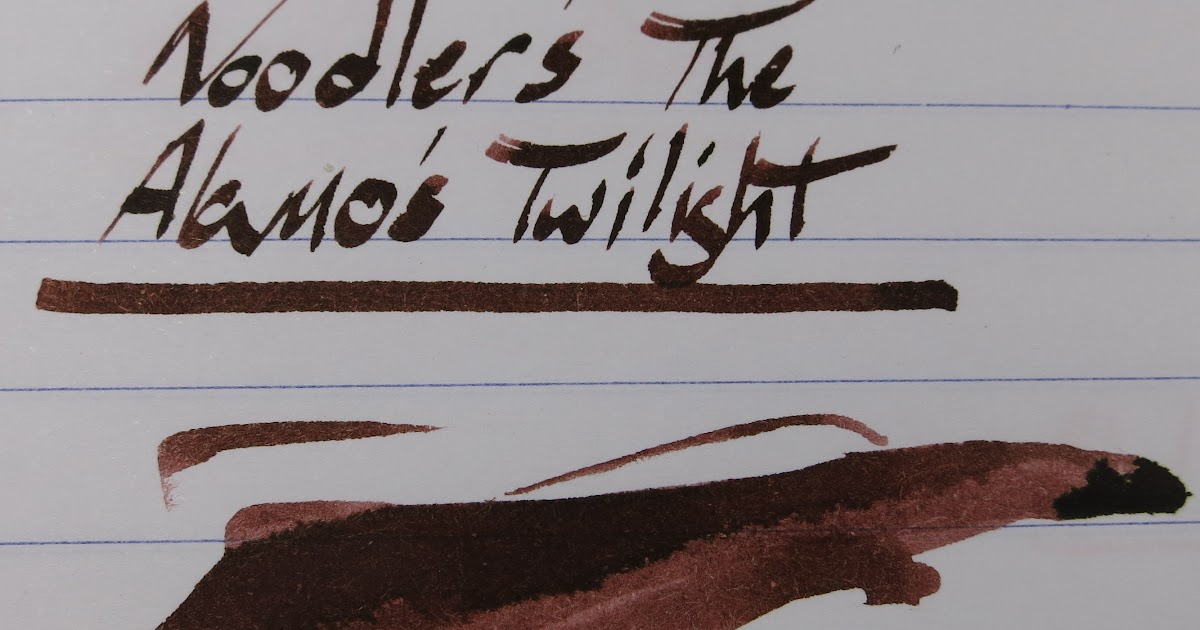 Noodler's The
Alamo's Twilight